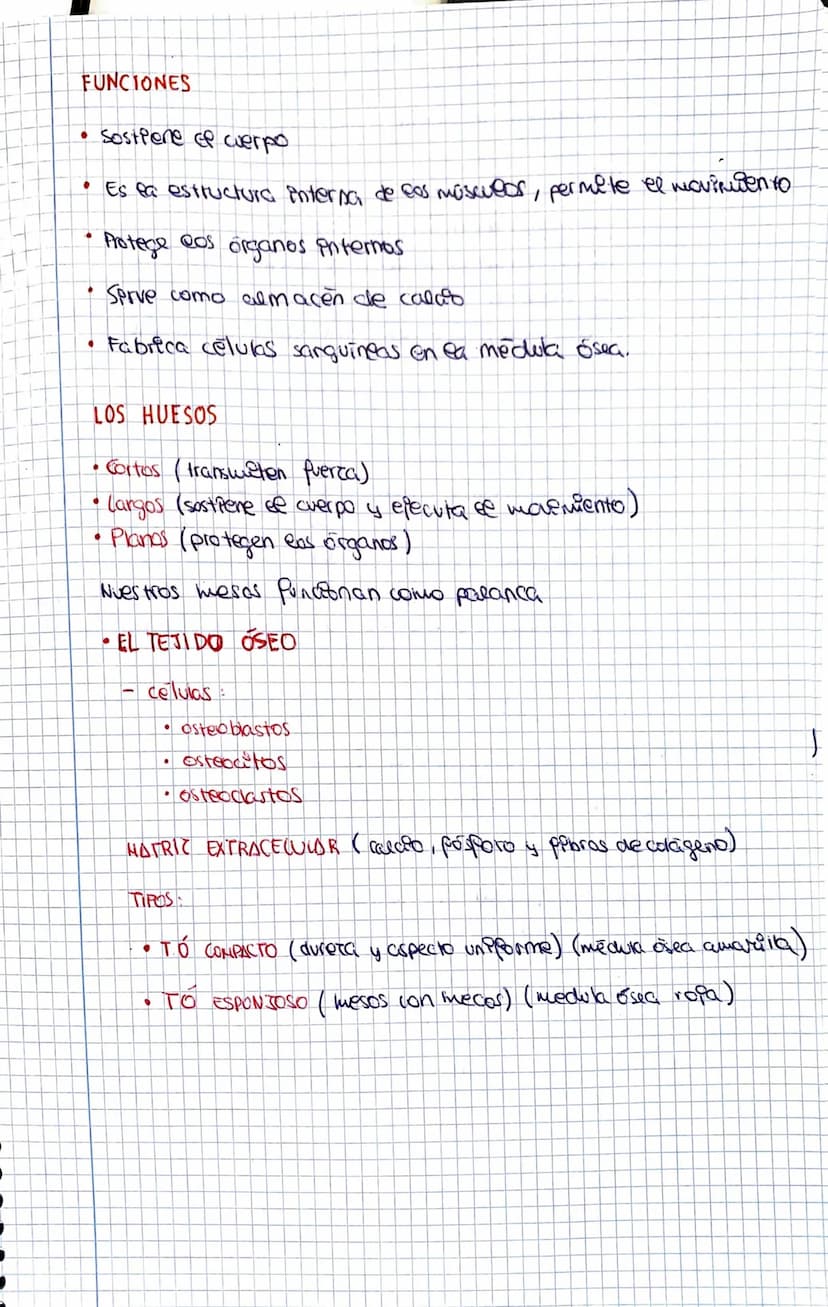 FUNCIONES
• Sostiene el cuerpo
• Es la estructura interna de los músculos, permite el movimiento
• Protege los órganos internos
• Sirve como almacén de calcio
• Fabrica células sanguíneas en la médula ósea.
LOS HUESOS
• Cortos (transmiten fuerza)
• Largos (sostiene el cuerpo y ejecuta el movimiento)
• Planos (protegen los órganos)
Nuestros huesos funcionan como palanca
• EL TEJIDO ÓSEO
- células:
• osteoblastos
• osteocitos
• osteoclastos
MATRIZ EXTRACELULAR (calcio, fósforo y fibras de colágeno)
TIPOS:
• TÓ COMPACTO (dureza y aspecto uniforme) (médula ósea amarilla)
• TÓ ESPONJOSO (huesos con huecos) (medula ósea roja)